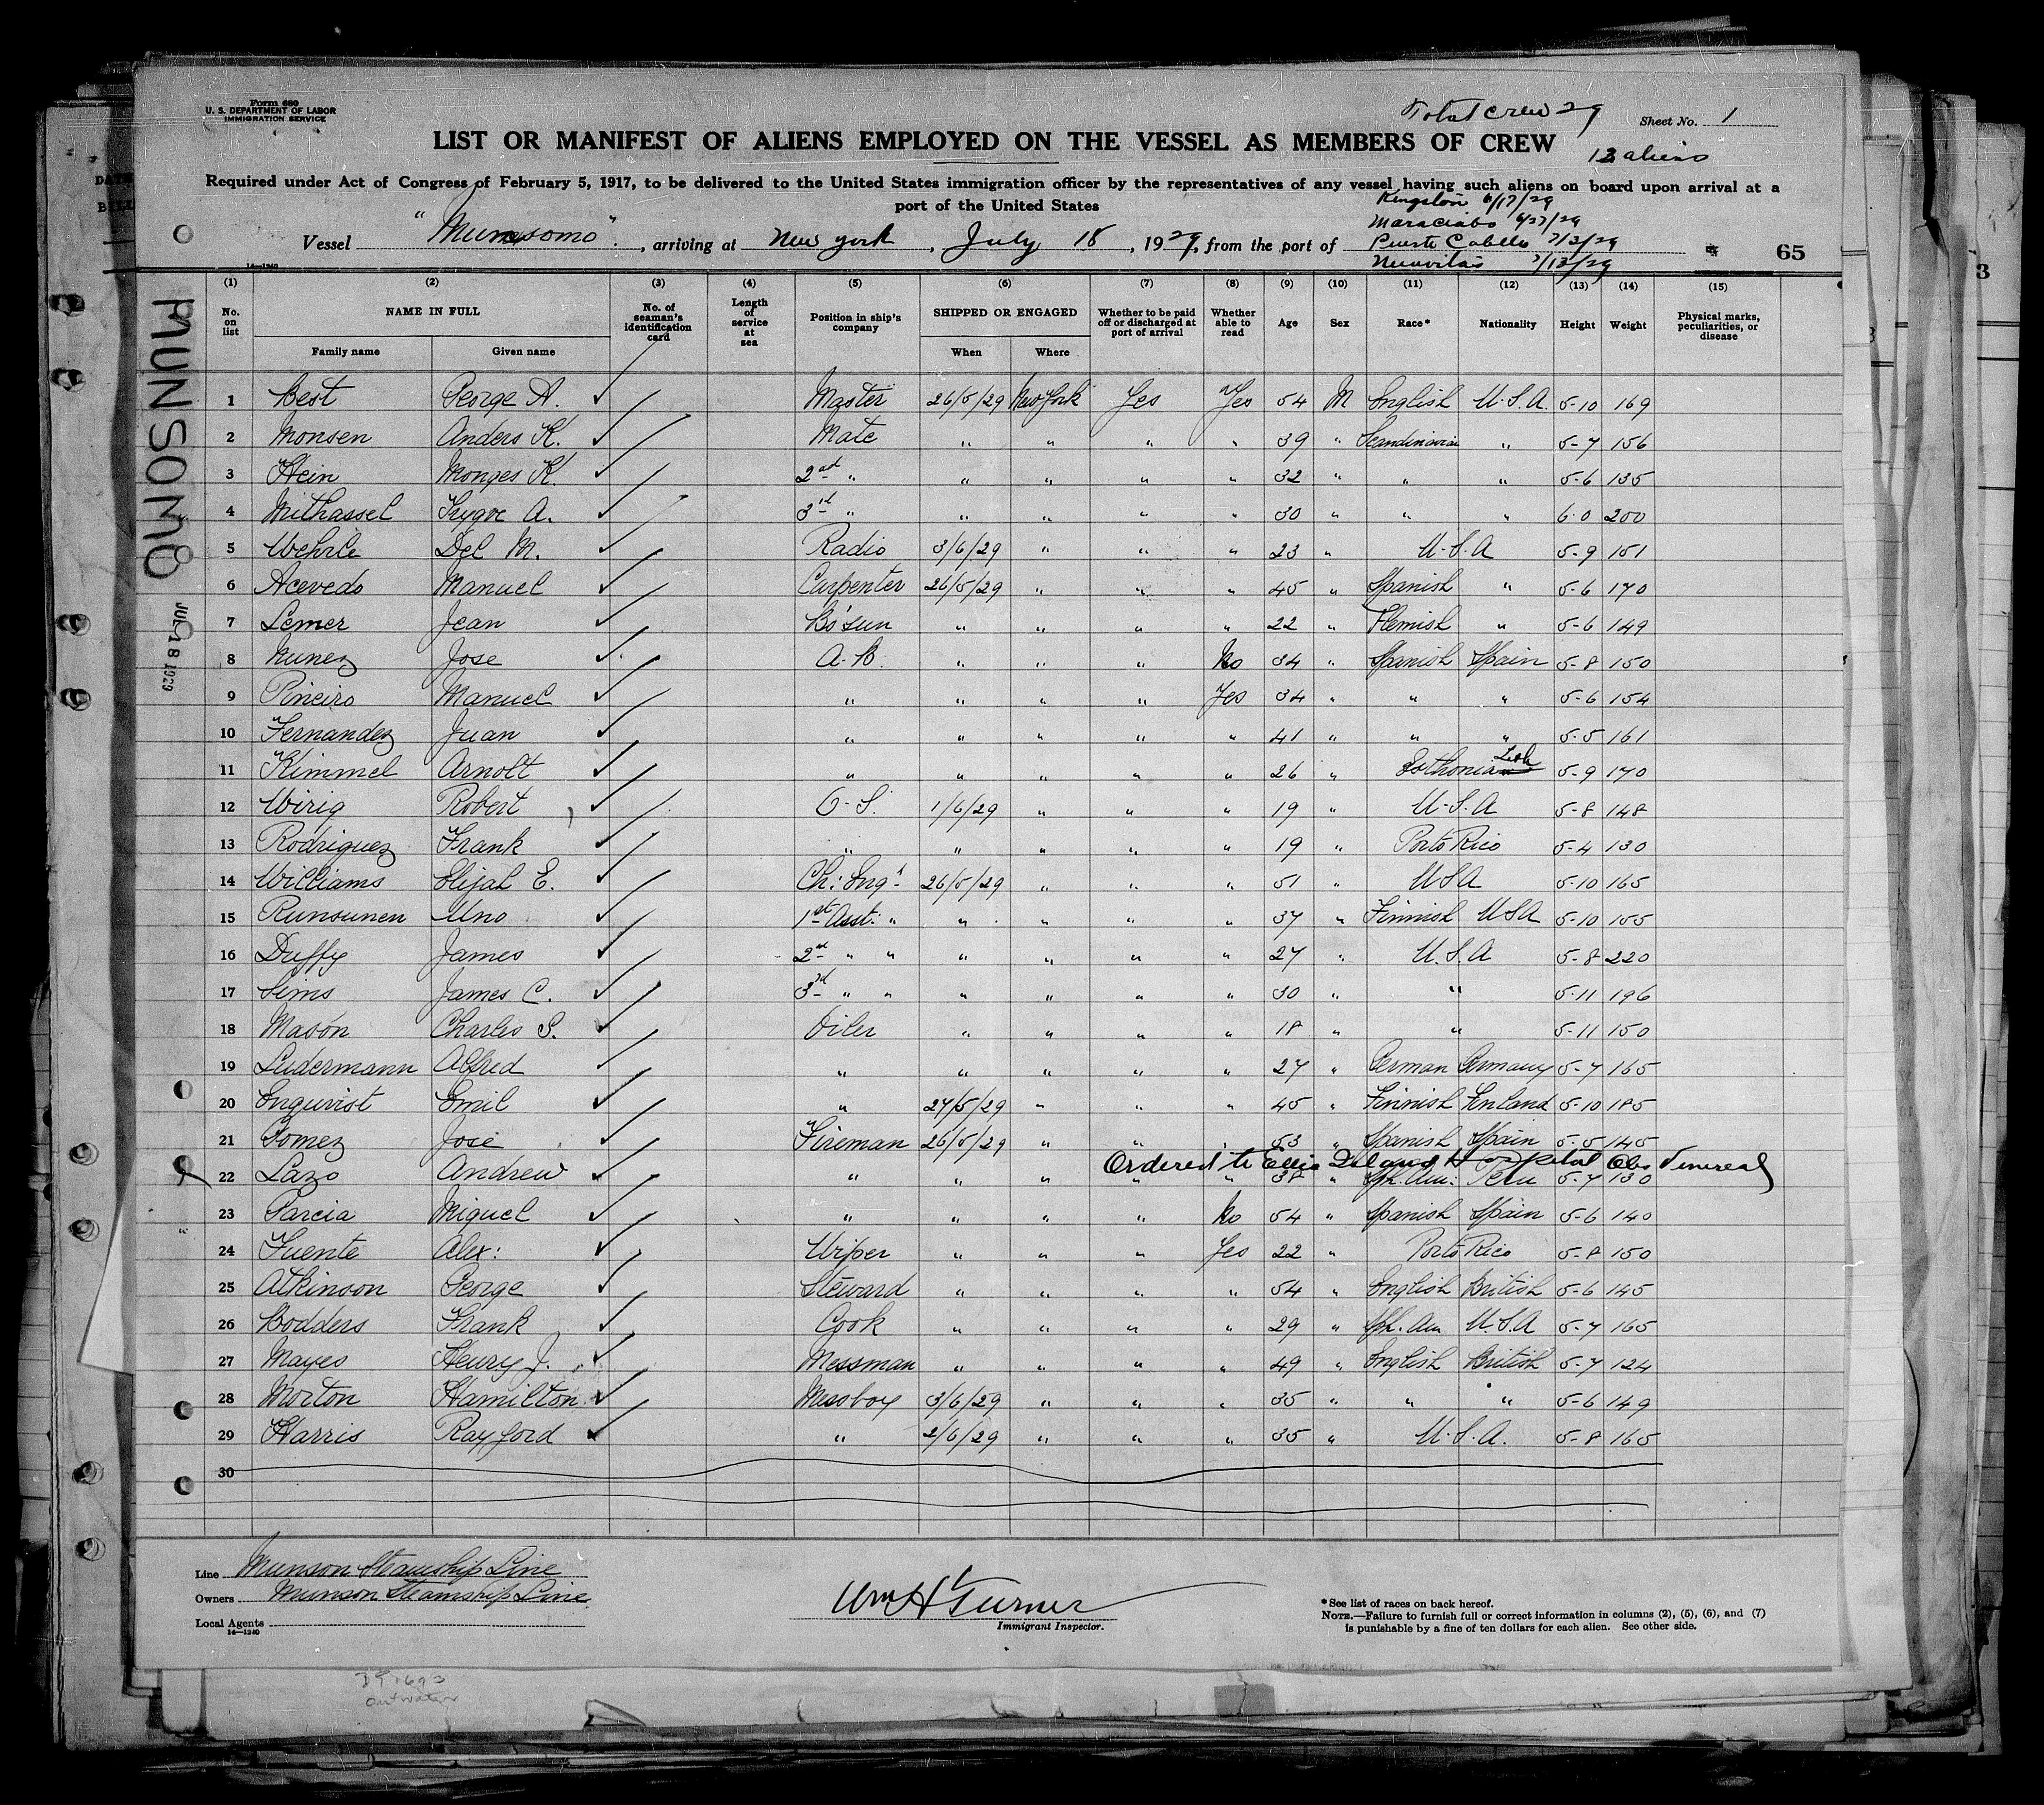 Form 680
U. S. DEPARTMENT OF LABOR
IMMIGRATION SERVICE
Total crew 29
Sheet No. 1
LIST OR MANIFEST OF ALIENS EMPLOYED ON THE VESSEL AS MEMBERS OF CREW
12 aliens
Required under Act of Congress of February 5, 1917, to be delivered to the United States immigration officer by the representatives of any vessel having such aliens on board upon arrival at a
port of the United States
Kingston 6/17/29
Maraciabo 6/27/29
Vessel "Munsomo", arriving at New York, July 18, 1929, from the port of Puerto Cabello 7/2/29
Nuevitas 7/13/29
65
14—1240
(1) (2) (3) (4) (5) (6) (7) (8) (9) (10) (11) (12) (13) (14) (15)
No. on list NAME IN FULL No. of seaman's identification card Length of service at sea Position in ship's company SHIPPED OR ENGAGED Whether to be paid off or discharged at port of arrival Whether able to read Age Sex Race* Nationality Height Weight Physical marks, peculiarities, or disease
Family name Given name When Where
1 Best George A. Master 26/5/29 New York Yes Yes 54 M English U.S.A. 5-10 169
2 Monsen Anders K. Mate " " " " 39 " Scandinavian " 5-7 156
3 Hein Monges K. 2nd " " " " " 32 " " " 5-6 135
4 Mithassel Trygve A. 3rd " " " " " 30 " " " 6-0 200
5 Wehrle Del M. Radio 3/6/29 " " " 23 " U.S.A 5-9 151
6 Acevedo Manuel Carpenter 26/5/29 " " " 45 " Spanish " 5-6 170
7 Lemer Jean Bo'sun " " " " 22 " Flemish " 5-6 149
8 Nunez Jose A.B. " " " No 34 " Spanish Spain 5-8 150
9 Pineiro Manuel " " " " Yes 34 " " " 5-6 154
10 Fernandez Juan " " " " " 41 " " " 5-5 161
11 Kimmel Arnolt " " " " " 26 " Esthonian 5-9 170
12 Wirig Robert O.S. 1/6/29 " " " 19 " U.S.A 5-8 148
13 Rodriguez Frank " " " " " 19 " Porto Rico 5-4 130
14 Williams Elijah E. Ch: Eng'r 26/5/29 " " " 51 " USA 5-10 165
15 Runsunen Uno 1st Asst: " " " " " 37 " Finnish USA 5-10 155
16 Duffy James 2nd " " " " " " 27 " U.S.A 5-8 220
17 Sims James C. 3rd " " " " " " 30 " " 5-11 196
18 Mason Charles S. Oiler " " " " 18 " " 5-11 150
19 Ludermann Alfred " " " " " 27 " German Germany 5-7 165
20 Enquvist Emil " 27/5/29 " " " 45 " Finnish Finland 5-10 185
21 Gomez Jose Fireman 26/5/29 " " " 53 " Spanish Spain 5-5 145
Ordered to Ellis Island Hospital Obs Venereal
22 Lazo Andrew " " " " " 38 " Sph. Am: Peru 5-7 130
23 Garcia Miguel " " " " No 54 " Spanish Spain 5-6 140
24 Fuente Alex: Wiper " " " Yes 22 " Porto Rico 5-8 150
25 Atkinson George Steward " " " " 54 " English British 5-6 145
26 Bodders Frank Cook " " " " 29 " U.S.A 5-7 165
27 Mayes Henry J. Messman " " " " 49 " English British 5-7 124
28 Morton Hamilton Messboy 3/6/29 " " " 35 " " " 5-6 149
29 Harris Rayford " 2/6/29 " " " 35 " U.S.A. 5-8 165
30
MUNSOMO
JUL 18 1929
Line Munson Steamship Line
Owners Munson Steamship Line
Local Agents
14—1240
Wm H Turner
Immigrant Inspector.
*See list of races on back hereof.
NOTE.—Failure to furnish full or correct information in columns (2), (5), (6), and (7)
is punishable by a fine of ten dollars for each alien. See other side.